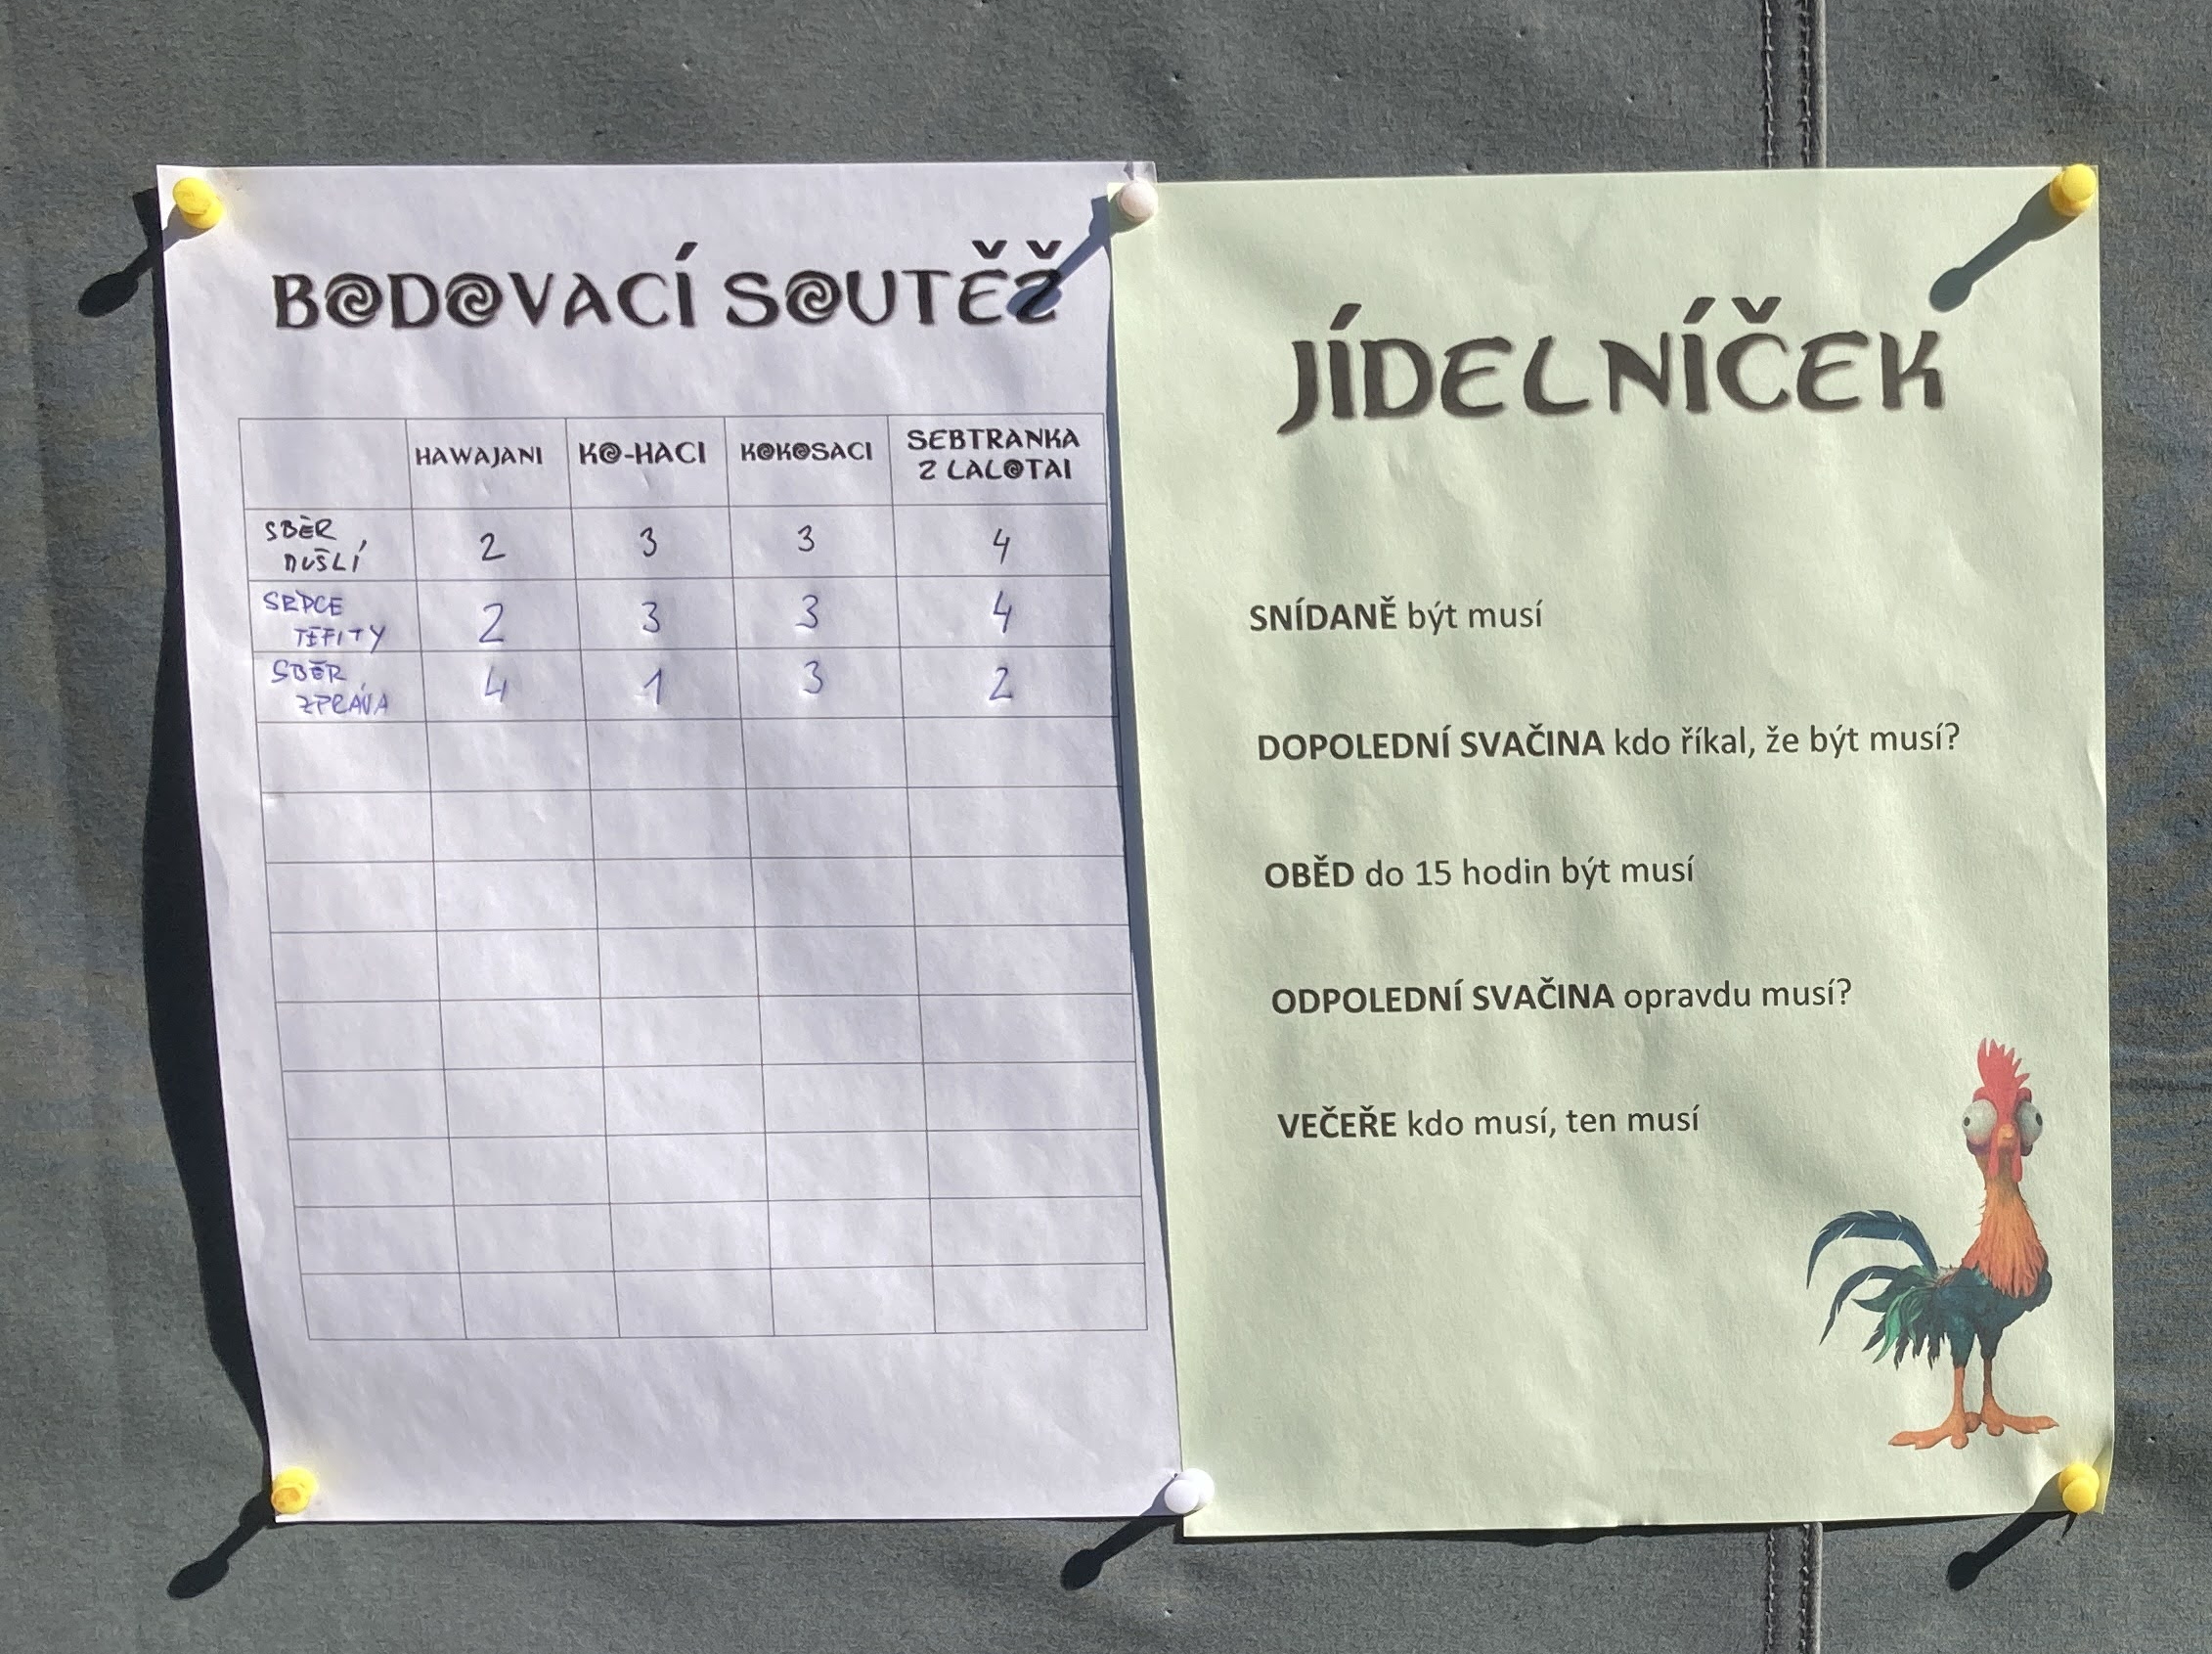 BODOVACÍ SOUTĚŽ
HAWAJANI KO-HACI KOKOSACI SEBTRANKA
Z LALOTAI
SBĚR
MUŠLÍ 2 3 3 4
SRDCE
TEFITY 2 3 3 4
SBĚR
ZPRÁVA 4 1 3 2
JÍDELNÍČEK
SNÍDANĚ být musí
DOPOLEDNÍ SVAČINA kdo říkal, že být musí?
OBĚD do 15 hodin být musí
ODPOLEDNÍ SVAČINA opravdu musí?
VEČEŘE kdo musí, ten musí